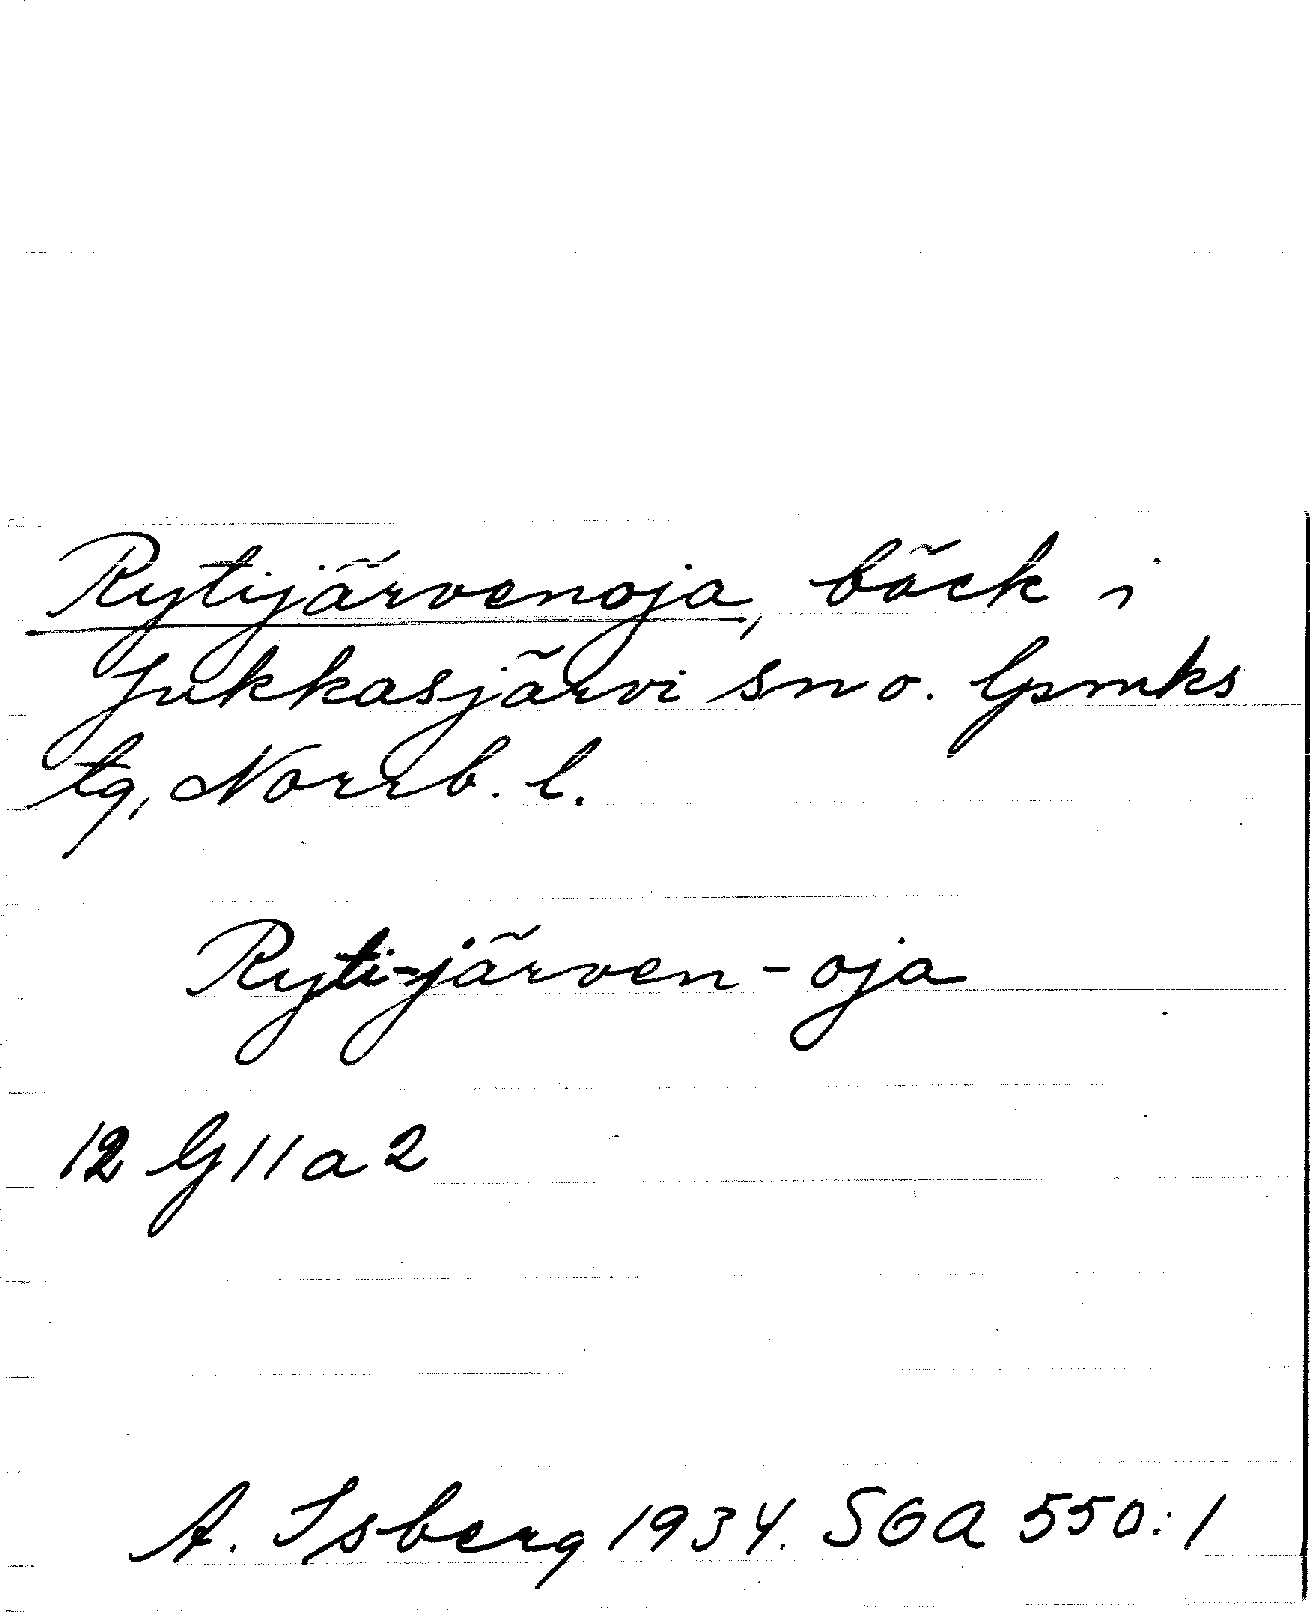 Rytijärvenoja, bäck i
Jukkasjärvi sn o. lpmks
tg, Norrb. l.
Ryti-järven-oja
12 G 11 a 2
A. Isberg 1934. SOA 550:1